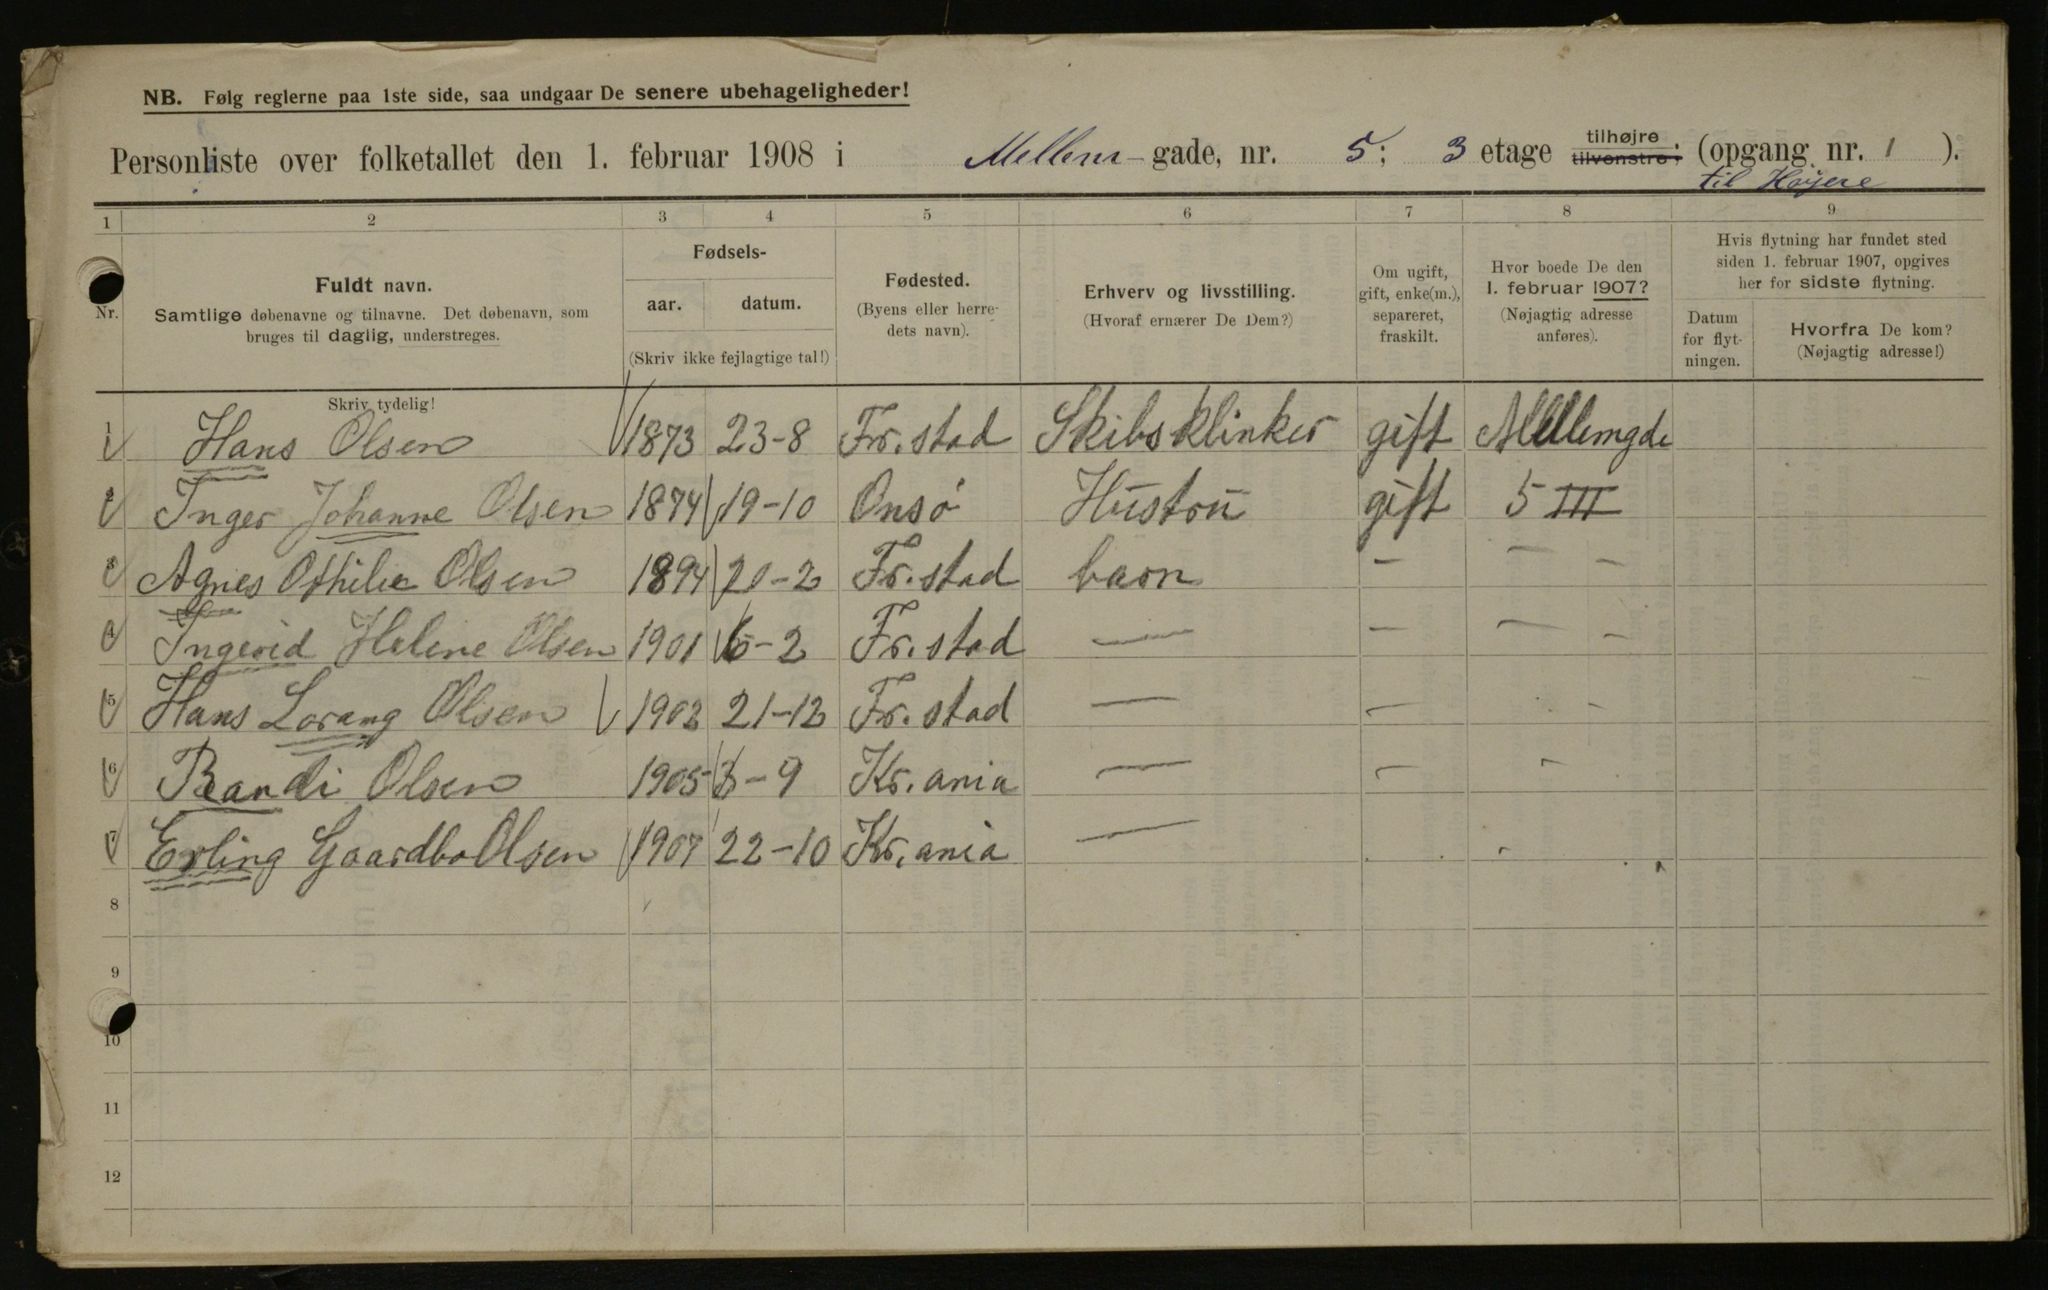 NB. Følg reglerne paa 1ste side, saa undgaar De senere ubehageligheder!
Personliste over folketallet den 1. februar 1908 i Mellem-gade, nr. 5; 3 etage tilhøjre. tilvenstre: (opgang nr. 1 ).
til Høyere
1 2 3 4 5 6 7 8 9
Nr.
Fuldt navn.
Samtlige døbenavne og tilnavne. Det døbenavn, som
bruges til daglig, understreges.
Skriv tydelig!
Fødsels-
aar. datum.
(Skriv ikke fejlagtige tal!)
Fødested.
(Byens eller herre-
dets navn).
Erhverv og livsstilling.
(Hvoraf ernærer De Dem?)
Om ugift,
gift, enke(m.),
separeret,
fraskilt.
Hvor boede De den
1. februar 1907?
(Nøjagtig adresse
anføres).
Hvis flytning har fundet sted
siden 1. februar 1907, opgives
her for sidste flytning.
Datum
for flyt-
ningen.
Hvorfra De kom?
(Nøjagtig adresse!)
1 Hans Olsen 1873 23-8 Fr.stad Skibsklinker gift Mellemgde
2 Inger Johanne Olsen 1874 19-10 Onsö Hustru gift 5 III
3 Agnes Othilie Olsen 1894 20-2 Fr.stad barn - - -
4 Ingerid Helene Olsen 1901 6-2 Fr.stad - - - -
5 Hans Lorang Olsen 1902 21-12 Fr.stad - - - -
6 Randi Olsen 1905 3-9 Kr.ania - - -
7 Erling Gaardbo Olsen 1907 22-10 Kr.ania -
8
9
10
11
12